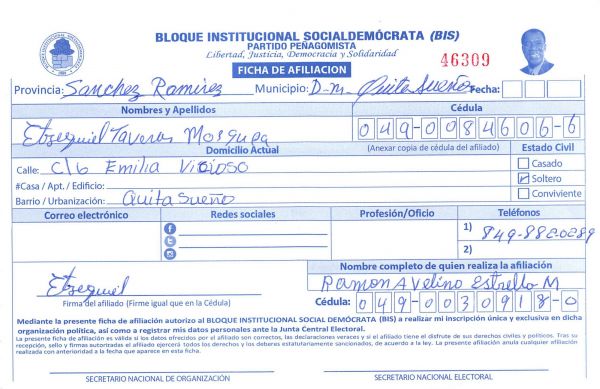 BLOQUE INSTITUCIONAL SOCIALDEMÓCRATA (BIS)
PARTIDO PEÑAGOMISTA
Libertad, Justicia, Democracia y Solidaridad
46309
FICHA DE AFILIACION
Provincia: Sanchez Ramirez Municipio: D-m. Quita Sueño Fecha:
Nombres y Apellidos Cédula
Etsequiel Taveras 049-0084606-6
Domicilio Actual (Anexar copia de cédula del afiliado) Estado Civil
Calle: C/b Emilia Vicioso Casado
#Casa / Apt. / Edificio: Soltero
Barrio / Urbanización: Quita Sueño Conviviente
Correo electrónico Redes sociales Profesión/Oficio Teléfonos
1) 849-882-0289
2)
Nombre completo de quien realiza la afiliación
Etsequiel Ramon Avelino Estrella M
Firma del afiliado (Firme igual que en la Cédula) Cédula: 049-0030918-0
Mediante la presente ficha de afiliación autorizo al BLOQUE INSTITUCIONAL SOCIAL DEMÓCRATA (BIS) a realizar mi inscripción única y exclusiva en dicha
organización política, así como a registrar mis datos personales ante la Junta Central Electoral.
La presente ficha de afiliación es válida si los datos ofrecidos por el afiliado son correctos, las declaraciones veraces y si el afiliado tiene el disfrute de sus derechos civiles y políticos. Tras su
recepción, sello y firmas autorizadas el afiliado ejercerá todos los derechos y los deberes estatutariamente sancionados, de acuerdo a la ley. La presente afiliación anula cualquier afiliación
realizada con anterioridad a la fecha que aparece en esta ficha.
SECRETARIO NACIONAL DE ORGANIZACIÓN SECRETARIO NACIONAL ELECTORAL